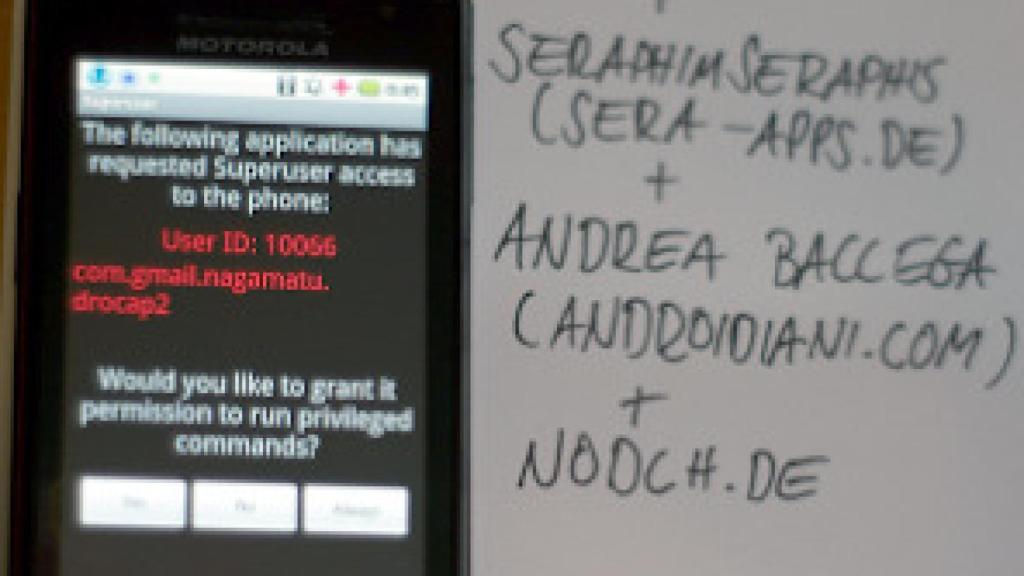 MOTOROLA
Superuser
The following application has
requested Superuser access
to the phone:
User ID: 10066
com.gmail.nagamatu.
drocap2
Would you like to grant it
permission to run privileged
commands?
Yes No Always
+
SERAPHIMSERAPHIS
(SERA-APPS.DE)
+
ANDREA BACCEGA
(ANDROIDIANI.COM)
+
NODCH.DE